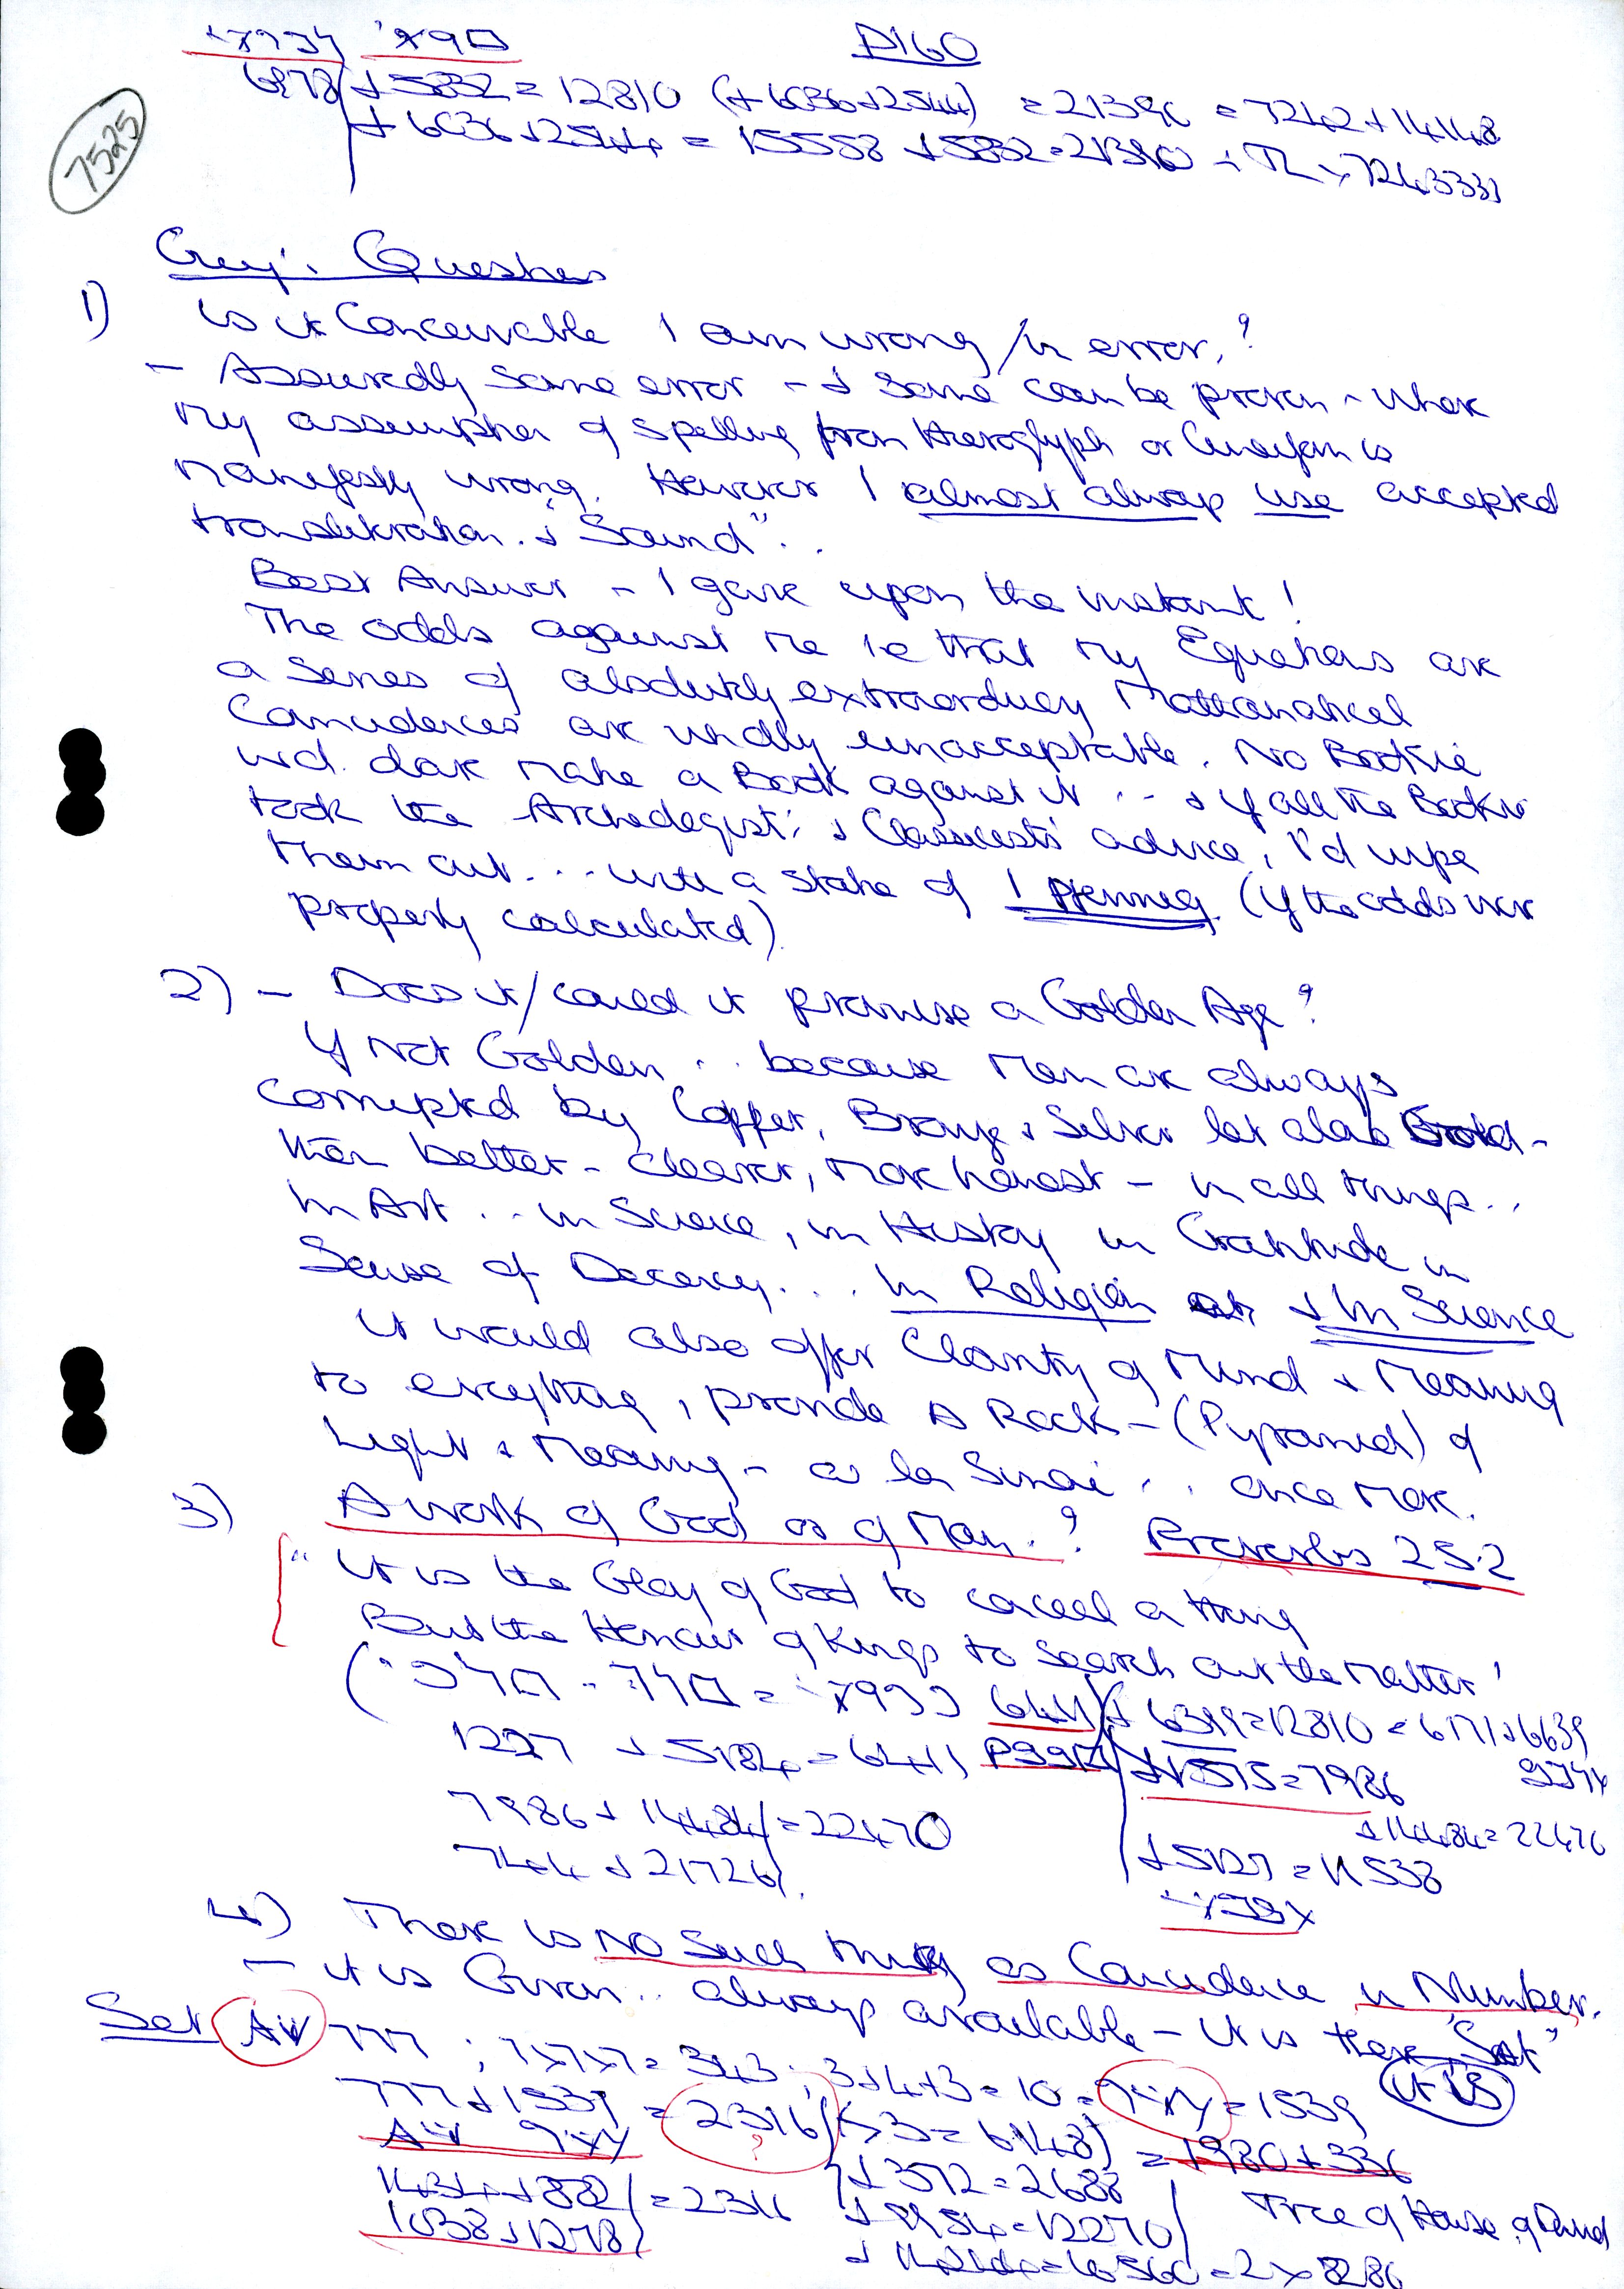 D160
7525
6978 + 5832 = 12810 (+ 6036 + 2544) = 21390 = 7242 + 14148
+ 6036 + 2544 = 15558 + 5832 = 21390
Guy's Questions
1) Is it Conceivable I am wrong / in error,?
- Assuredly some error - & some can be proven - where
my assumption of spelling from Hieroglyph or Cuneiform is
manifestly wrong. However I almost always use accepted
transliteration. & "Sound"..
Best Answer - I gave upon the instant!
The odds against me ie that my Equations are
a series of absolutely extraordinary Mathematical
Coincidences are wholly unacceptable. No Bookie
wd. dare make a Book against it ... & if all the Bookies
took the Archeologists' & Classicists' advice, I'd wipe
them out ... with a stake of 1 Pfennig (if the odds were
properly calculated)
2) - Does it/could it promise a Golden Age?
If Not Golden .. because Men are always
corrupted by Copper, Bronze & Silver let alone Gold -
then better - cleaner, more honest - in all things..
In Art .. in Science, in History in Gratitude in
Sense of Decency ... In Religion & In Science
it would also offer Clarity of Mind & Meaning
to everything, provide A Rock - (Pyramid) of
Light & Meaning - as la Sinai .. once more.
3) A work of God or of Man.? Proverbs 25.2
"it is the Glory of God to conceal a thing
But the Honour of Kings to search out the matter'
6411 + 6399 = 12810 = 6171 + 6639
1227 + 5184 = 6411 + 1575 = 7986
7986 + 14484 = 22470 + 14484 = 22470
744 + 21726 + 5127 = 11538
4) There is No Such thing as Coincidence in Number.
- it is Given .. always available - it is there "Set"
it is
Set 777 ; 7x7x7 = 343 ; 3+4+3 = 10 = 1539
777 + 1539 = 2316 (x 3 = 6948) = 1980 + 336
?
1434 + 882 = 2316 + 372 = 2688
1038 + 1278 + 9954 = 12270 Tree of House of David
= 16560 = 2 x 8286